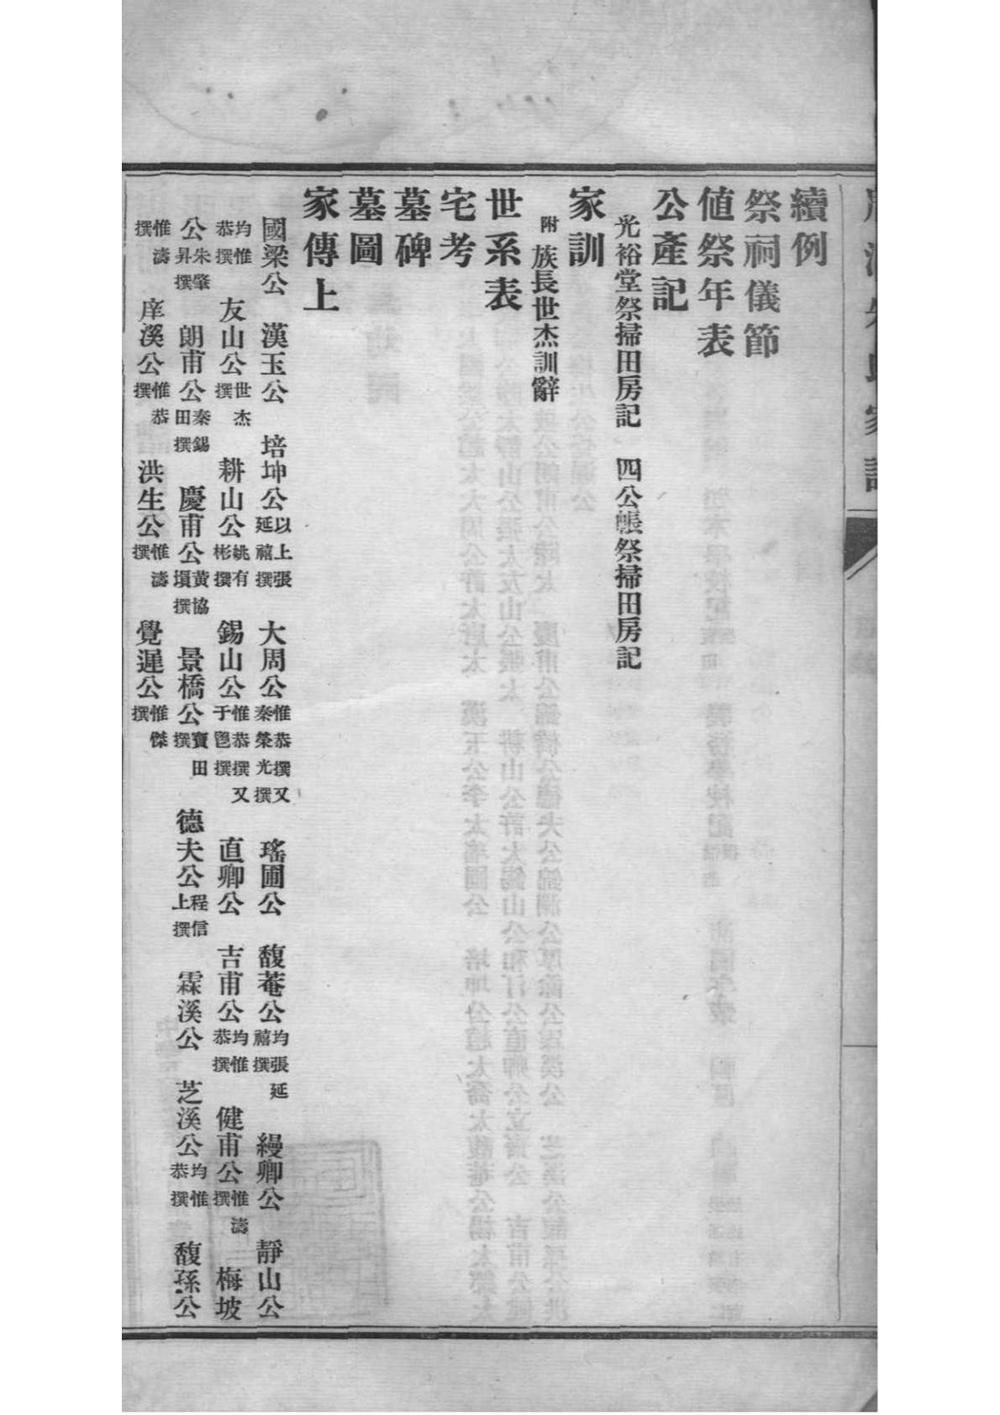 續例
祭祠儀節
値祭年表
公產記
光裕堂祭掃田房記 四公帳祭掃田房記
家訓
附族長世杰訓辭
世系表
宅考
墓碑
墓圖
家傳上
國梁公 漢玉公 培坤公以上張延禧撰 大周公惟恭撰又秦榮光撰 瑤圃公 馥菴公均張延禧撰 縵卿公 靜山公
均惟恭撰 友山公世杰撰 耕山公姚有彬撰 錫山公惟恭撰又于鬯撰 直卿公 吉甫公均惟恭撰 健甫公惟濤撰 梅坡
公朱肇昇撰 朗甫公秦錫田撰 慶甫公黃協塤撰 景橋公寶田撰 德夫公程信上撰 霖溪公 芝溪公均惟恭撰 馥孫公
惟濤撰 庠溪公惟恭撰 洪生公惟濤撰 覺遲公惟傑撰